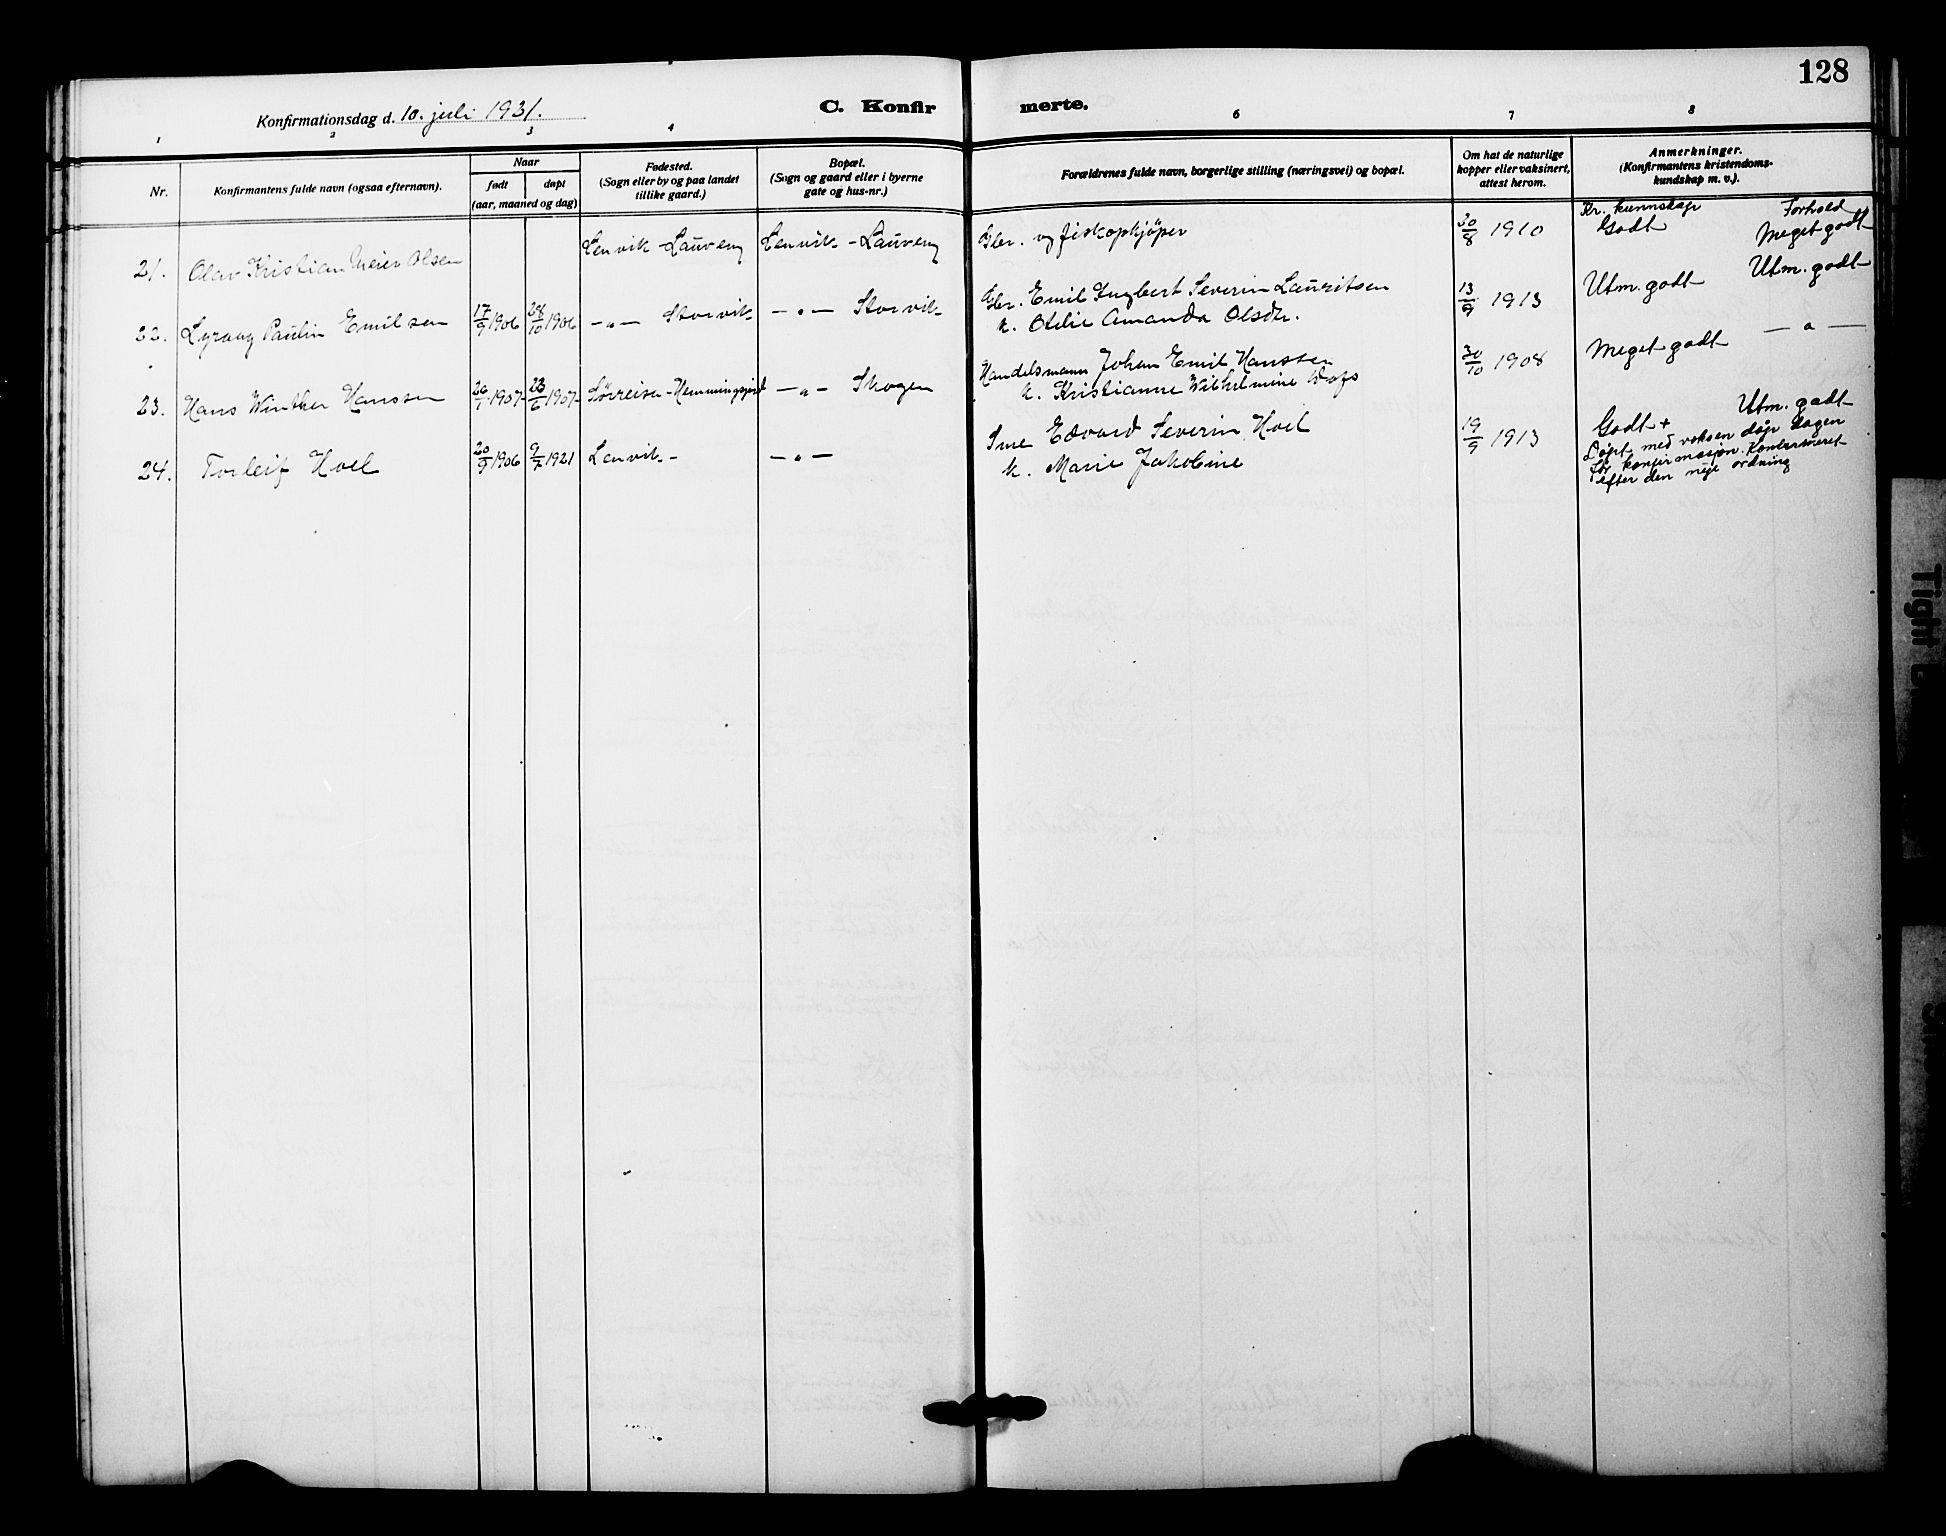 128
Konfirmationsdag d. 10. juli 1931.
C. Konfir merte.
1 2 3 4 6 7 8
Nr.
Konfirmantens fulde navn (ogsaa efternavn).
Naar
født døpt
(aar, maaned og dag)
Fødested.
(Sogn eller by og paa landet
tillike gaard.)
Bopæl.
(Sogn og gaard eller i byerne
gate og hus-nr.)
Forældrenes fulde navn, borgerlige stilling (næringsvei) og bopæl.
Om hat de naturlige
kopper eller vaksinert,
attest herom.
Anmerkninger.
(Konfirmantens kristendoms-
kundskap m. v.).
Kr. kunnskap Forhold
21. Olav Kristian Meier Olsen Lenvik - Laüveng Lenvik - Laüveng Gbr. og fiskopkjøper 30/8 1910 Godt Meget godt
22. Lyravg Paulin Emilsen 17/9 1906 28/10 1906 -"- Storvik -"- Storvik
Gbr. Emil Ingbert Severin Laüritsen
k. Otelie Amanda Olsdtr. 13/9 1913 Utm. godt Utm. godt
23. Hans Winther Hanssen 26/1 1907 23/6 1907 Sørreisen - Hemmingsjord -"- Skogen
Handelsmann Johan Emil Hanssen
k. Kristianne Wilhelmine 30/10 1908 Meget godt -"-
24. Torleif Hoel 20/9 1906 9/7 1921 Lenvik - -"-
Sme Edvard Severin Hoel
k. Marie Jakobine 19/9 1913 Godt + Utm. godt
Døpt med voksen dåp dagen
før konfirmasjon. Konfirmeret
efter den nye ordning
Tight